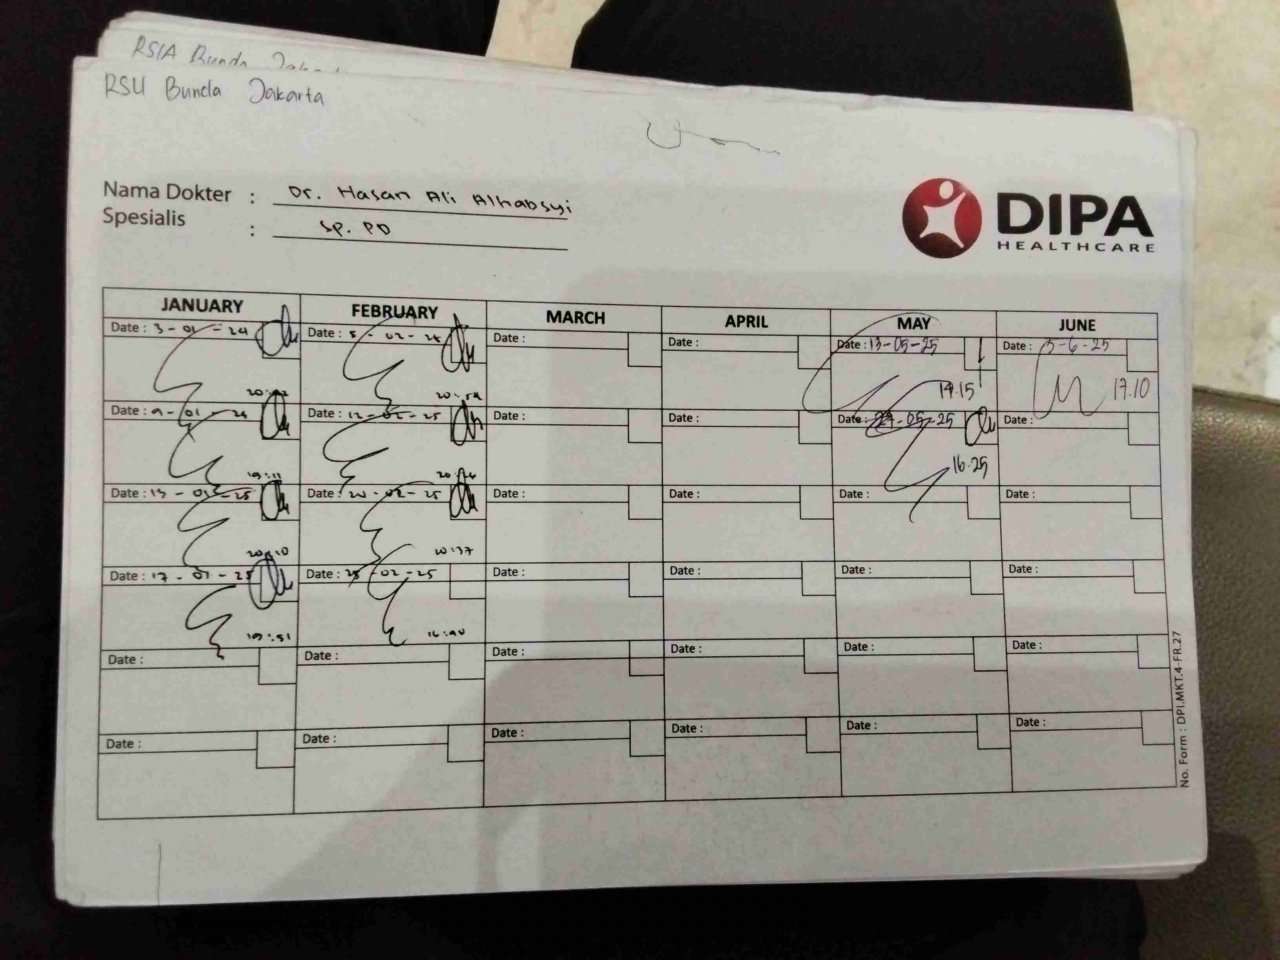 RSIA Bunda
RSU Bunda Jakarta
Nama Dokter : Dr. Hasan Ali Alhabsyi
Spesialis : Sp. PD
DIPA
HEALTHCARE
JANUARY FEBRUARY MARCH APRIL MAY JUNE
Date : 3-01-24 Date : 5-02-25 Date : Date : Date : 13-05-25 Date : 3-6-25
20:54 19.15 17.10
Date : 9-01-24 Date : 12-02-25 Date : Date : Date : 27-05-25 Date :
19:11 20:26 16.25
Date : 13-01-25 Date : 20-02-25 Date : Date : Date : Date :
20:10 20:37
Date : 17-01-25 Date : 25-02-25 Date : Date : Date : Date :
19:51 16:40
Date : Date : Date : Date : Date : Date :
Date : Date : Date : Date : Date : Date :
No. Form : DPI.MKT.4-FR.27